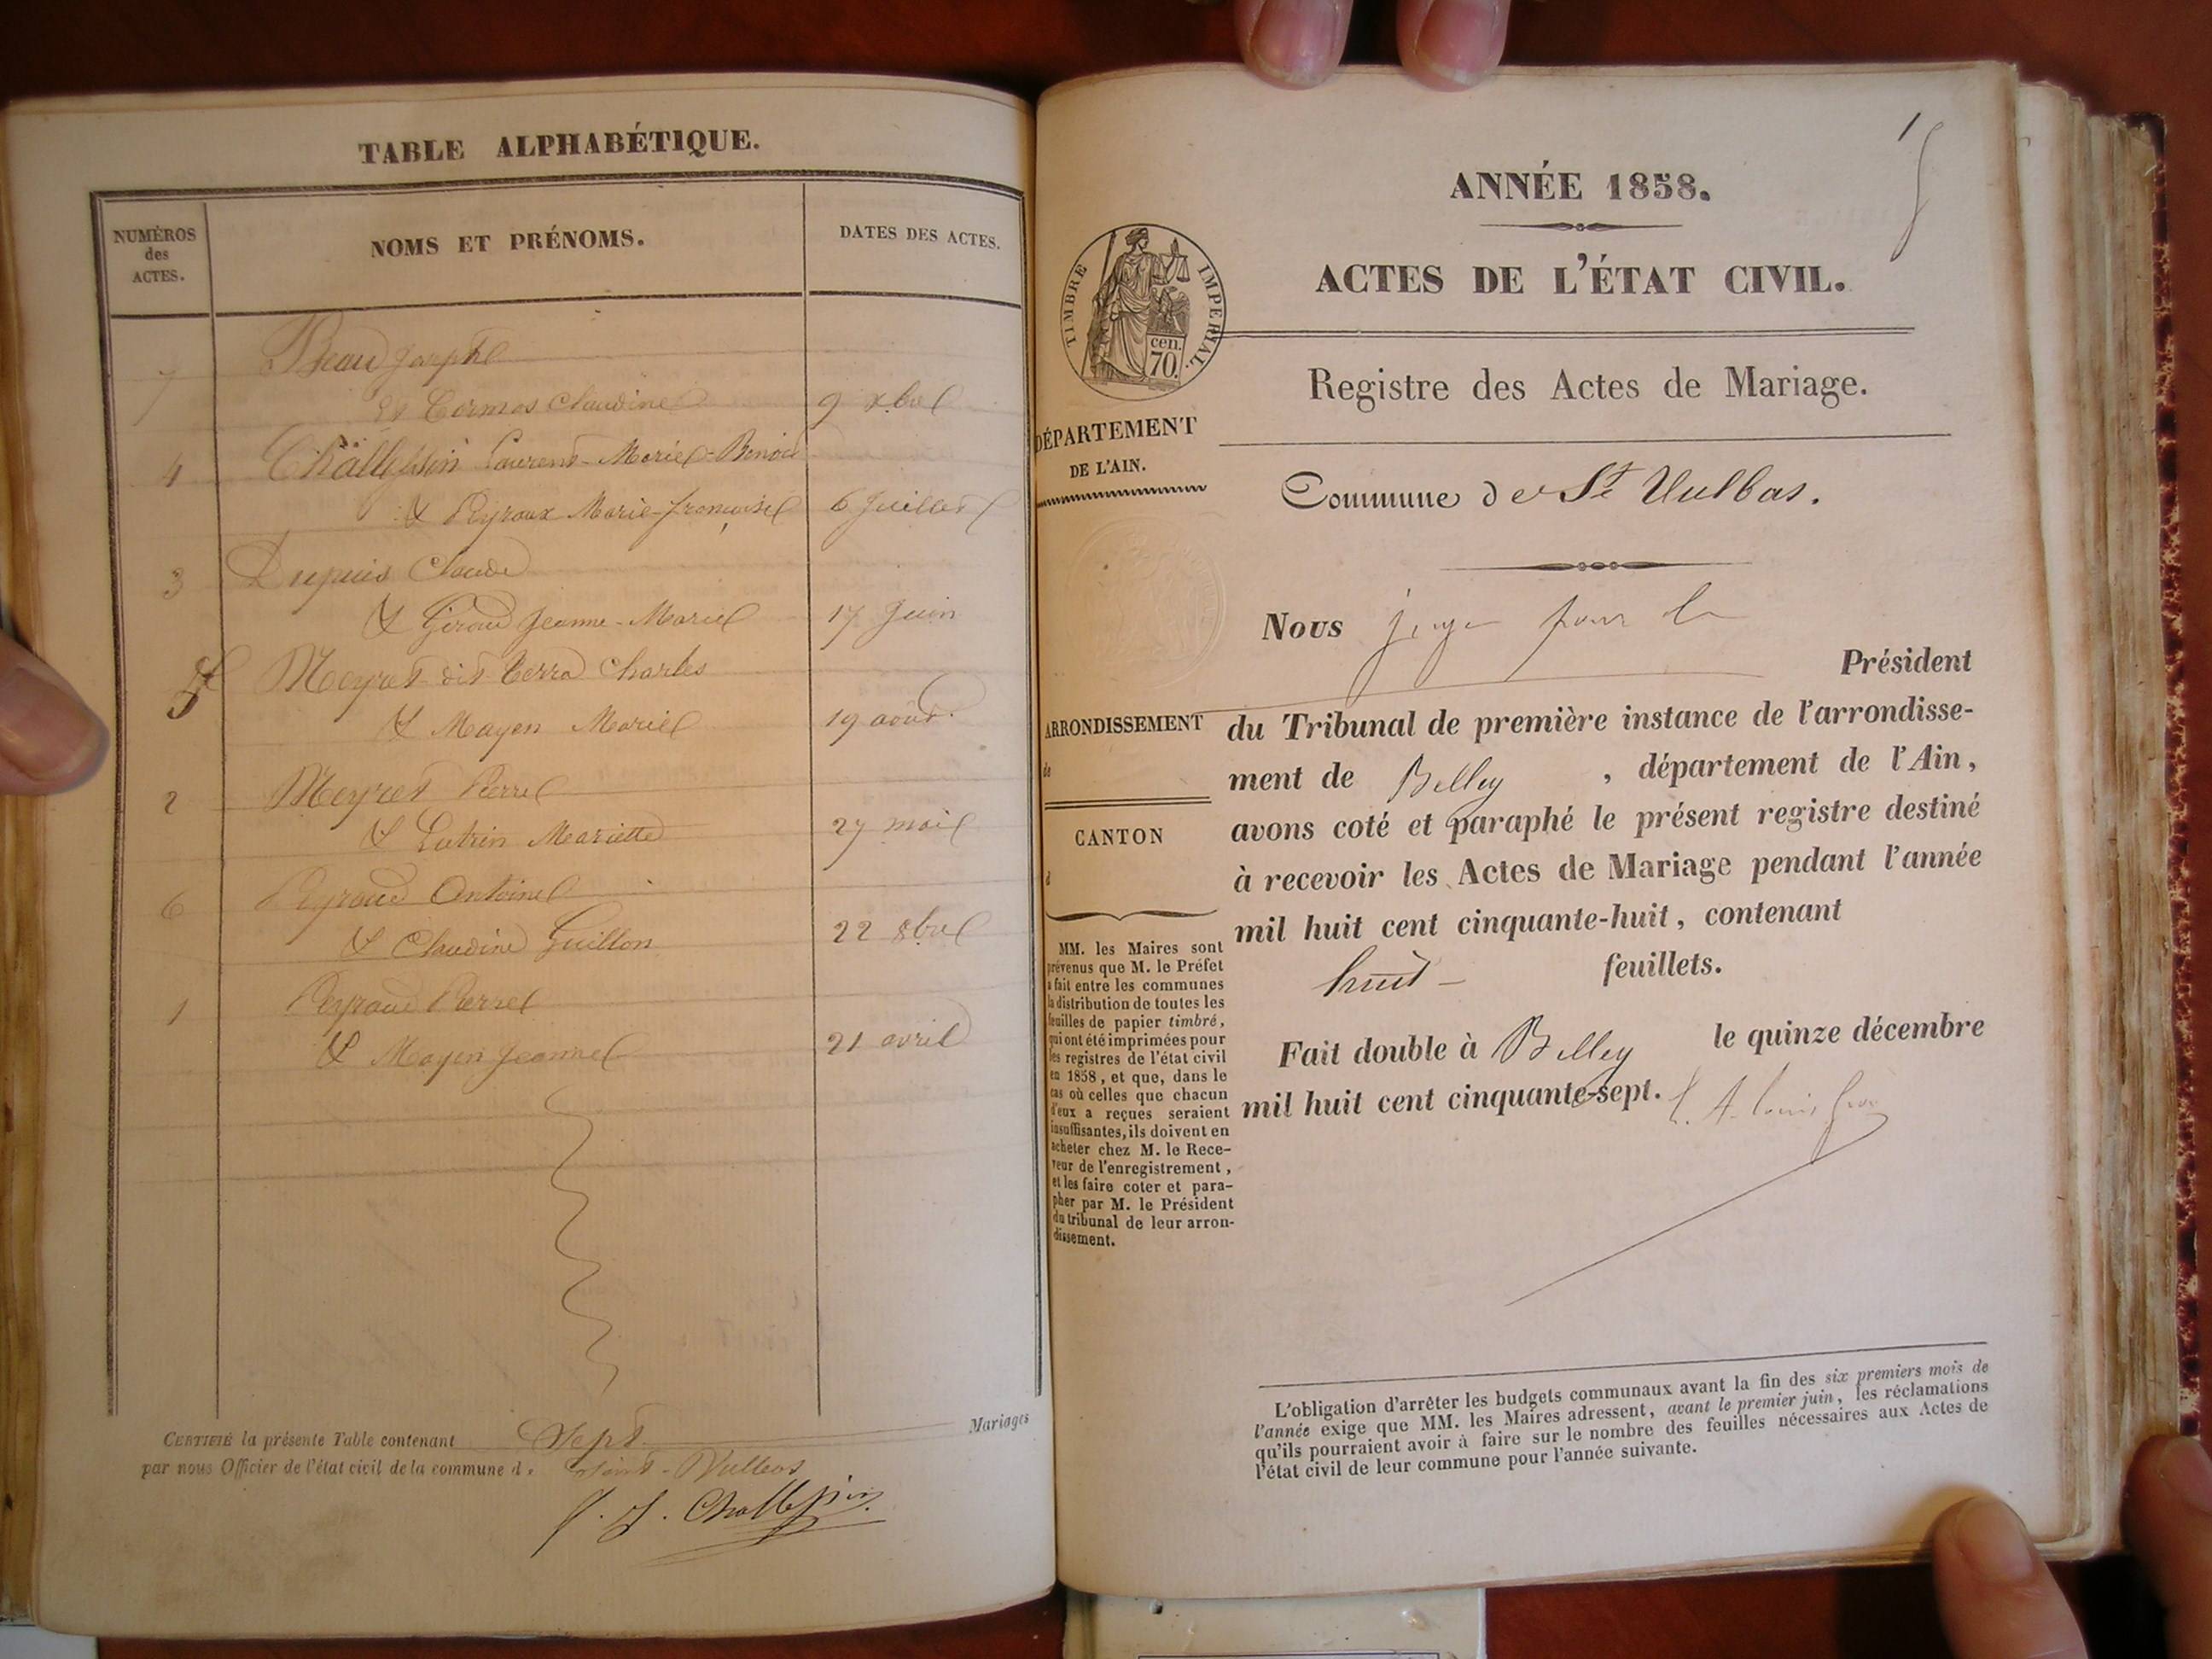 TABLE ALPHABÉTIQUE.
NUMÉROS
des
ACTES.
NOMS ET PRÉNOMS.
DATES DES ACTES.
7 Beau Joseph
et Cormos Claudine 9 xbre
4 Challepsin Laurent-Marie-Benoit
& Peyroux Marie-françoise 6 Juillet
3 Dupuis Claude
& Giroud Jeanne-Marie 17 Juin
5 Meyret dit Terra Charles
& Mayen Marie 19 août.
2 Meyret Pierre
& Lutrin Mariette 27 mai
6 Peyroud Antoine
& Claudine Guillon 22 8bre
1 Peyroud Pierre
& Mayen Jeanne 21 avril
CERTIFIÉ la présente Table contenant Sept Mariages
par nous Officier de l'état civil de la commune d Saint-Vulbas
J. Challepsin
1
ANNÉE 1858.
ACTES DE L'ÉTAT CIVIL.
TIMBRE IMPERIAL.
cen.
70.
Registre des Actes de Mariage.
DÉPARTEMENT
DE L'AIN.
Commune de St Vulbas.
Nous juge pour le
Président
ARRONDISSEMENT
de
CANTON
d
du Tribunal de première instance de l'arrondisse-
ment de Belley, département de l'Ain,
avons coté et paraphé le présent registre destiné
à recevoir les Actes de Mariage pendant l'année
mil huit cent cinquante-huit, contenant
huit feuillets.
Fait double à Belley le quinze décembre
mil huit cent cinquante-sept.
MM. les Maires sont
prévenus que M. le Préfet
a fait entre les communes
la distribution de toutes les
feuilles de papier timbré,
qui ont été imprimées pour
les registres de l'état civil
en 1858, et que, dans le
cas où celles que chacun
d'eux a reçues seraient
insuffisantes, ils doivent en
acheter chez M. le Rece-
veur de l'enregistrement,
et les faire coter et para-
pher par M. le Président
du tribunal de leur arron-
dissement.
L'obligation d'arrêter les budgets communaux avant la fin des six premiers mois de
l'année exige que MM. les Maires adressent, avant le premier juin, les réclamations
qu'ils pourraient avoir à faire sur le nombre des feuilles nécessaires aux Actes de
l'état civil de leur commune pour l'année suivante.